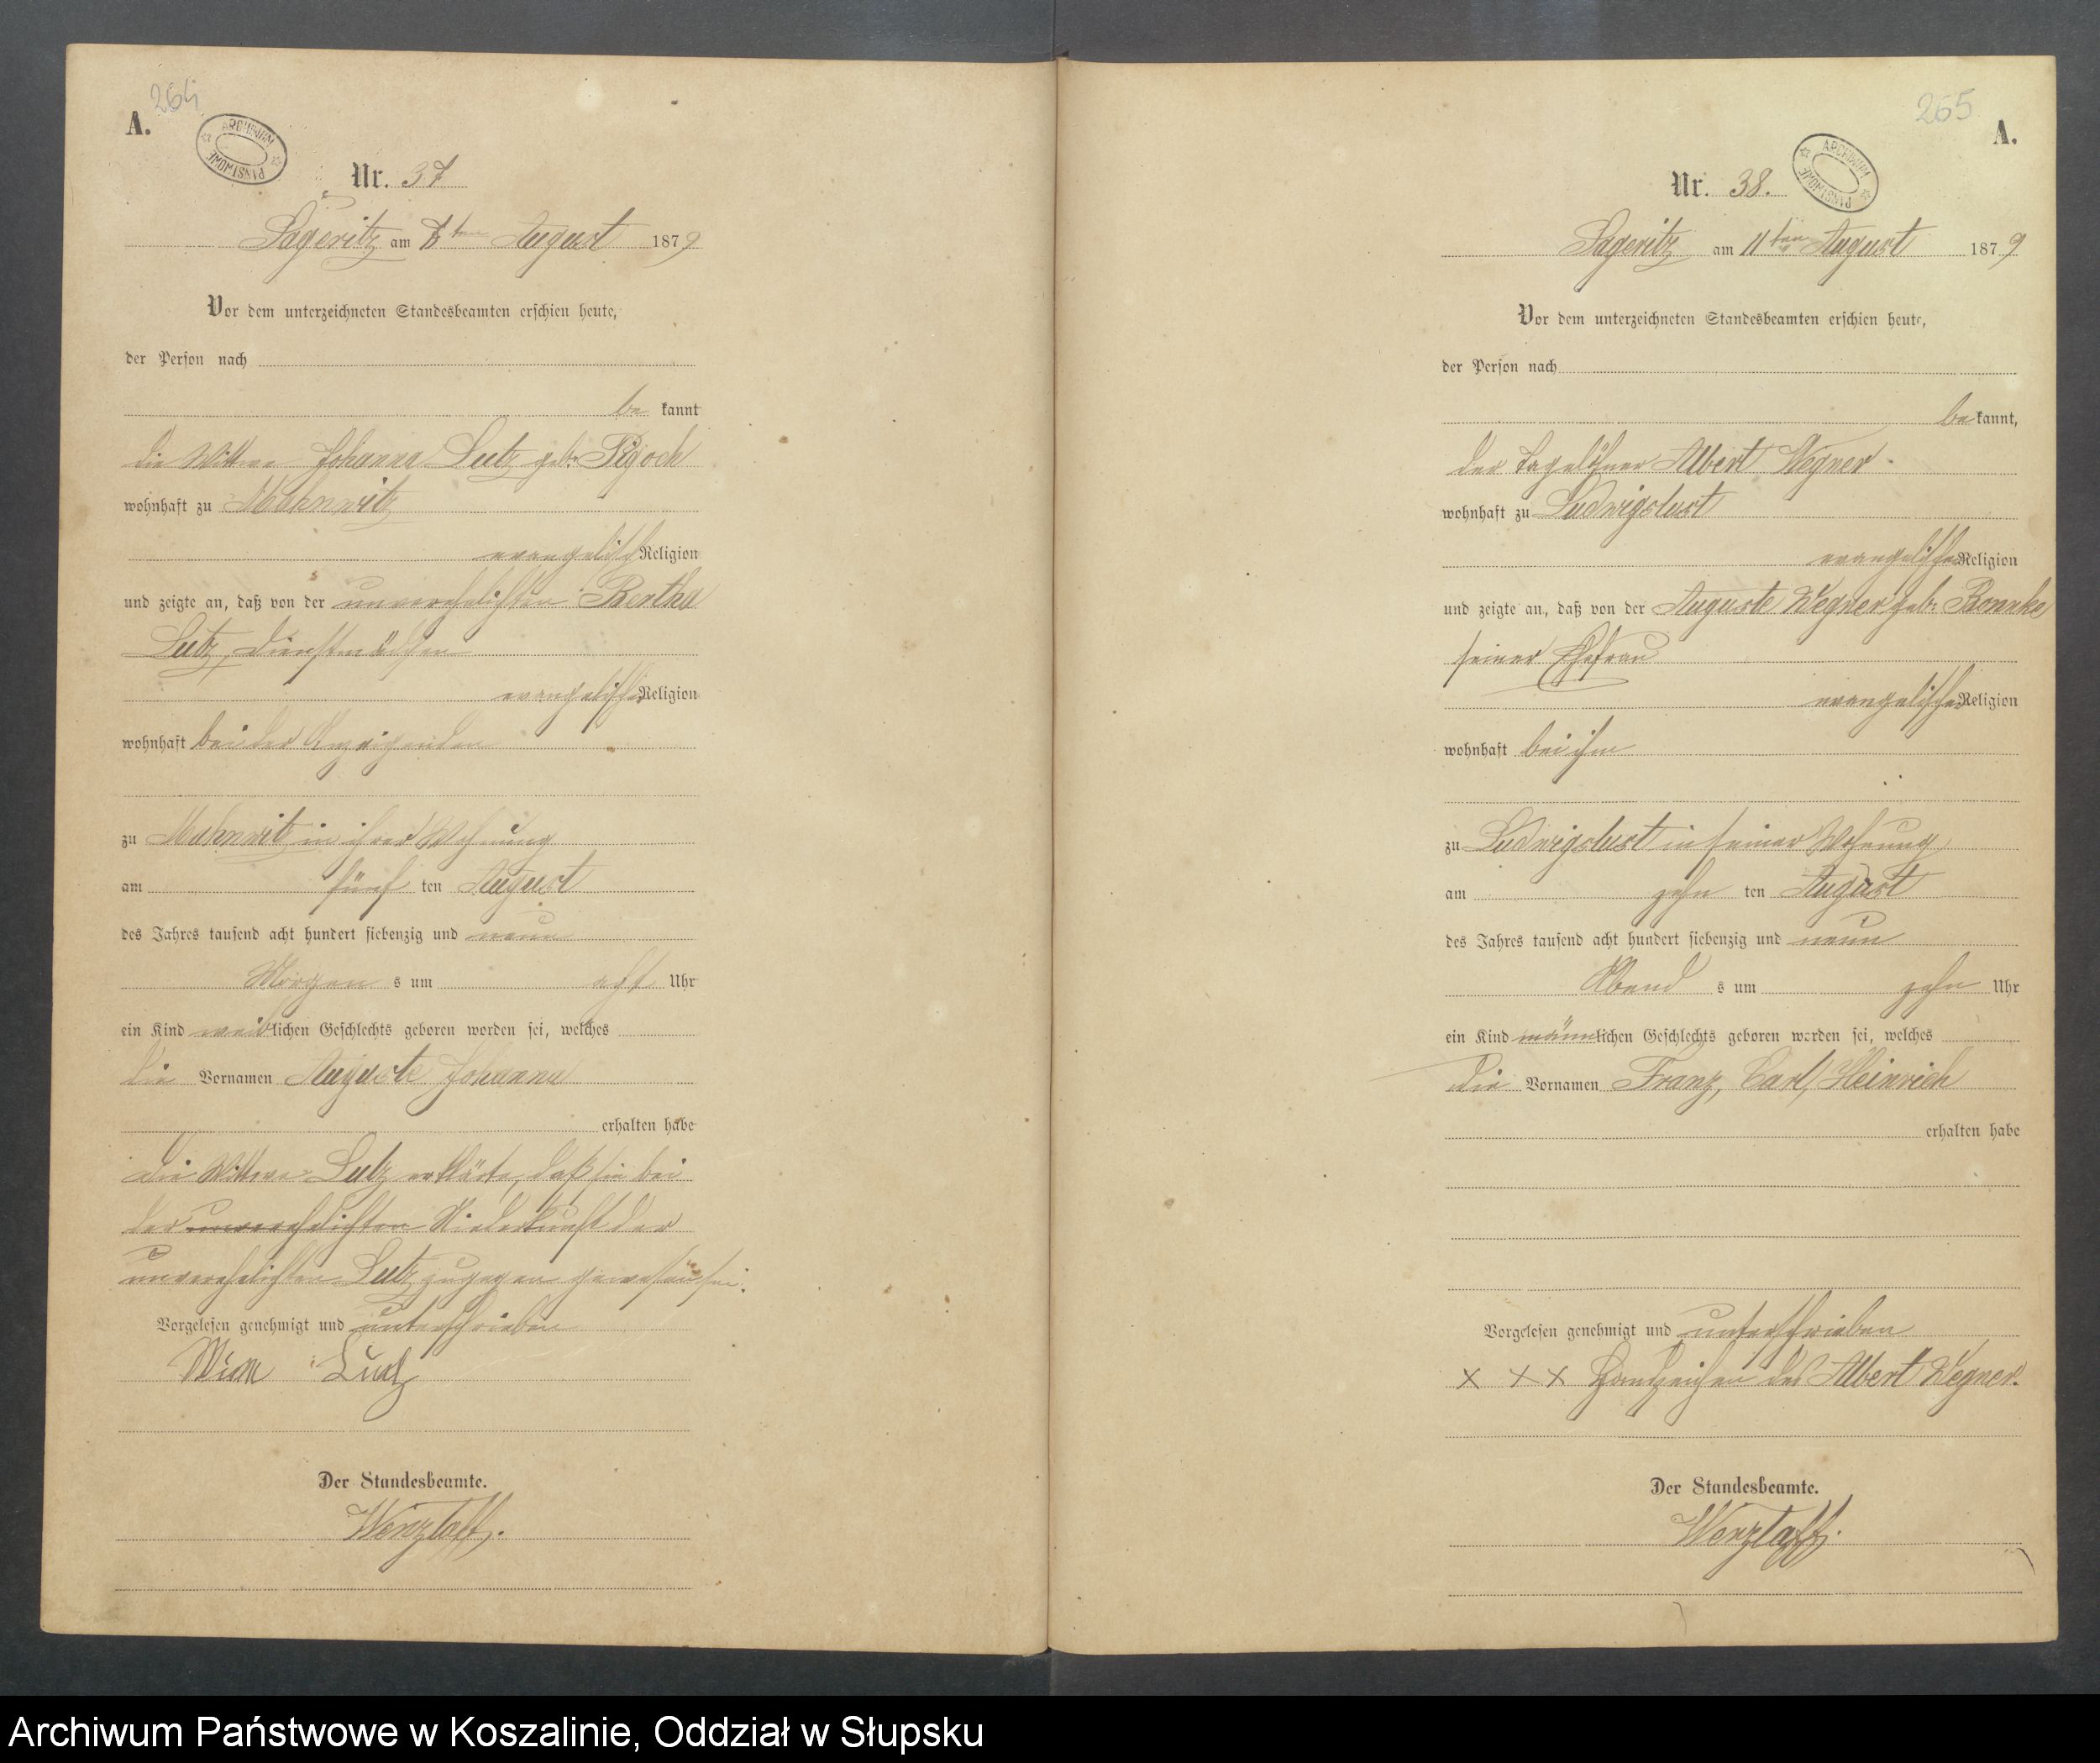 264
A.
ARCHIWUM PAŃSTWOWE
Nr. 37
Sageritz am 8ten August 1879
Vor dem unterzeichneten Standesbeamten erschien heute,
der Person nach
be kannt
die Wittwe Johanna Lutz geb. Pigoch
wohnhaft zu Mahnwitz
evangelisch Religion
und zeigte an, daß von der unverehelichten Bertha
Lutz, Dienstmädchen
evangelischer Religion
wohnhaft bei der Anzeigenden
zu Mahnwitz in ihrer Wohnung
am fünf ten August
des Jahres tausend acht hundert siebenzig und neun
Morgen s um acht Uhr
ein Kind weiblichen Geschlechts geboren worden sei, welches
die Vornamen Auguste Johanna
erhalten habe
Die Wittwe Lutz erklärte, daß sie bei
der unverehelichten Niederkunft der
unverehelichten Lutz zugegen gewesen sei.
Vorgelesen genehmigt und unterschrieben
Der Standesbeamte.
Wenzlaff.
265
A.
ARCHIWUM PAŃSTWOWE
Nr. 38.
Sageritz am 11ten August 1879
Vor dem unterzeichneten Standesbeamten erschien heute,
der Person nach
be kannt,
der Tagelöhner Albert Wegner
wohnhaft zu Ludwigslust
evangelischer Religion
und zeigte an, daß von der Auguste Wegner geb. Bonnke
seiner Ehefrau
evangelischer Religion
wohnhaft bei ihm
zu Ludwigslust in seiner Wohnung
am zehn ten August
des Jahres tausend acht hundert siebenzig und neun
Abend s um zehn Uhr
ein Kind männlichen Geschlechts geboren worden sei, welches
die Vornamen Franz, Carl, Heinrich
erhalten habe
Vorgelesen genehmigt und unterschrieben
x x x Handzeichen des Albert Wegner.
Der Standesbeamte.
Wenzlaff.
Archiwum Państwowe w Koszalinie, Oddział w Słupsku